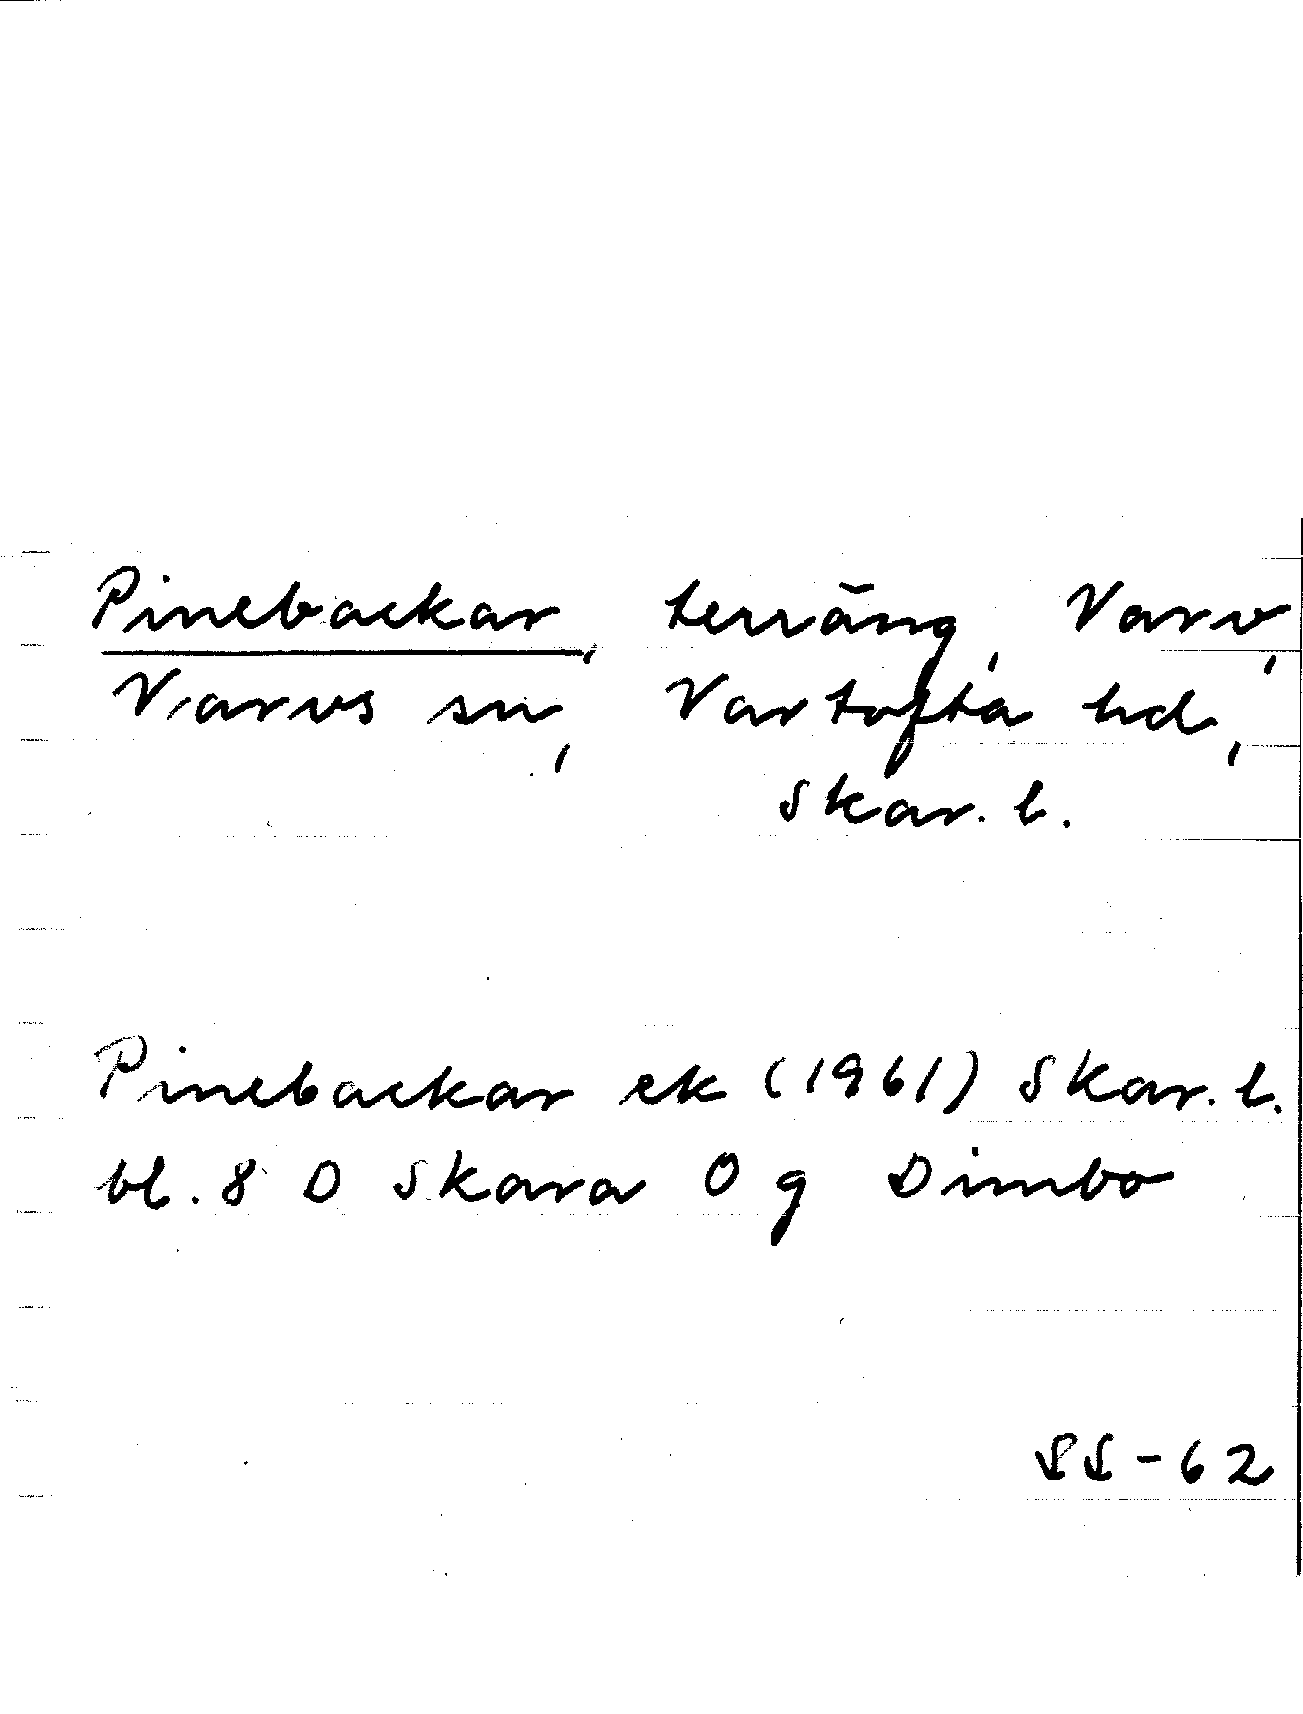 Pinebackar, terräng, Varv,
Varvs sn, Vartofta hd,
Skar. l.
Pinebackar ek (1961) Skar. l.
bl. 8 D Skara 0 g Dimbo
SS-62